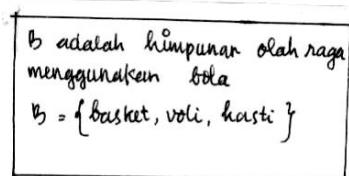 B adalah himpunan olah raga
menggunakan bola
B = {basket, voli, hasti}